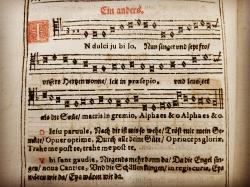 Ein anders.
N dulci jubilo, Nun singet und seyt fro/
unsers Hertzen wonne/ leit in præsepio, und leuchtet
als die Sonne/ matris in gremio, Alpha es & o Alpha es & o.
O Jesu parvule, Nach dir ist mir so wehe/ Tröst mir mein Ge-
müte/ O puer optime, Durch alle deine Güte/ O princeps gloriæ,
Trahe me post te, trahe me post te.
Ubi sunt gaudia, Nirgends mehr denn da/ Da die Engel sin-
gen/ nova Cantica, Und die Schellen klingen/ in regis curia, Eya
wären wir da/ Eya wären wir da.